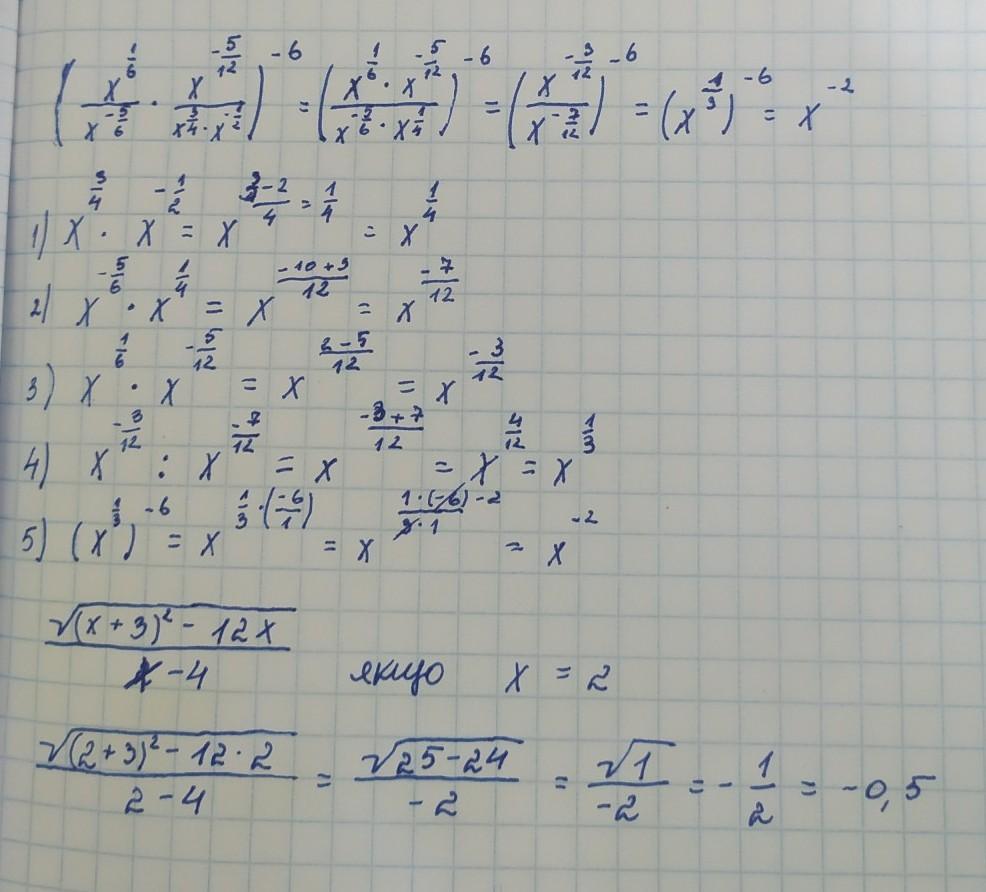 (x^(1/6) / x^(-5/6) · x^(-5/12) / (x^(3/4) · x^(-1/2)))^(-6) = (x^(1/6) · x^(-5/12) / (x^(-5/6) · x^(1/4)))^(-6) = (x^(-3/12) / x^(-7/12))^(-6) = (x^(1/3))^(-6) = x^(-2)
1) x^(3/4) · x^(-1/2) = x^((3-2)/4 = 1/4) = x^(1/4)
2) x^(-5/6) · x^(1/4) = x^((-10+3)/12) = x^(-7/12)
3) x^(1/6) · x^(-5/12) = x^((2-5)/12) = x^(-3/12)
4) x^(-3/12) : x^(-7/12) = x^((-3+7)/12) = x^(4/12) = x^(1/3)
5) (x^(1/3))^(-6) = x^(1/3 · (-6/1)) = x^((1·(-6) -2)/(3·1)) = x^(-2)
√((x+3)² - 12x) / (x-4) якщо x = 2
√((2+3)² - 12·2) / (2-4) = √(25-24) / (-2) = √1 / (-2) = -1/2 = -0,5